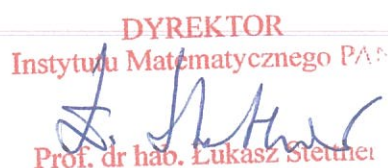 DYREKTOR
Instytutu Matematycznego PAN
Prof. dr hab. Łukasz Stettner